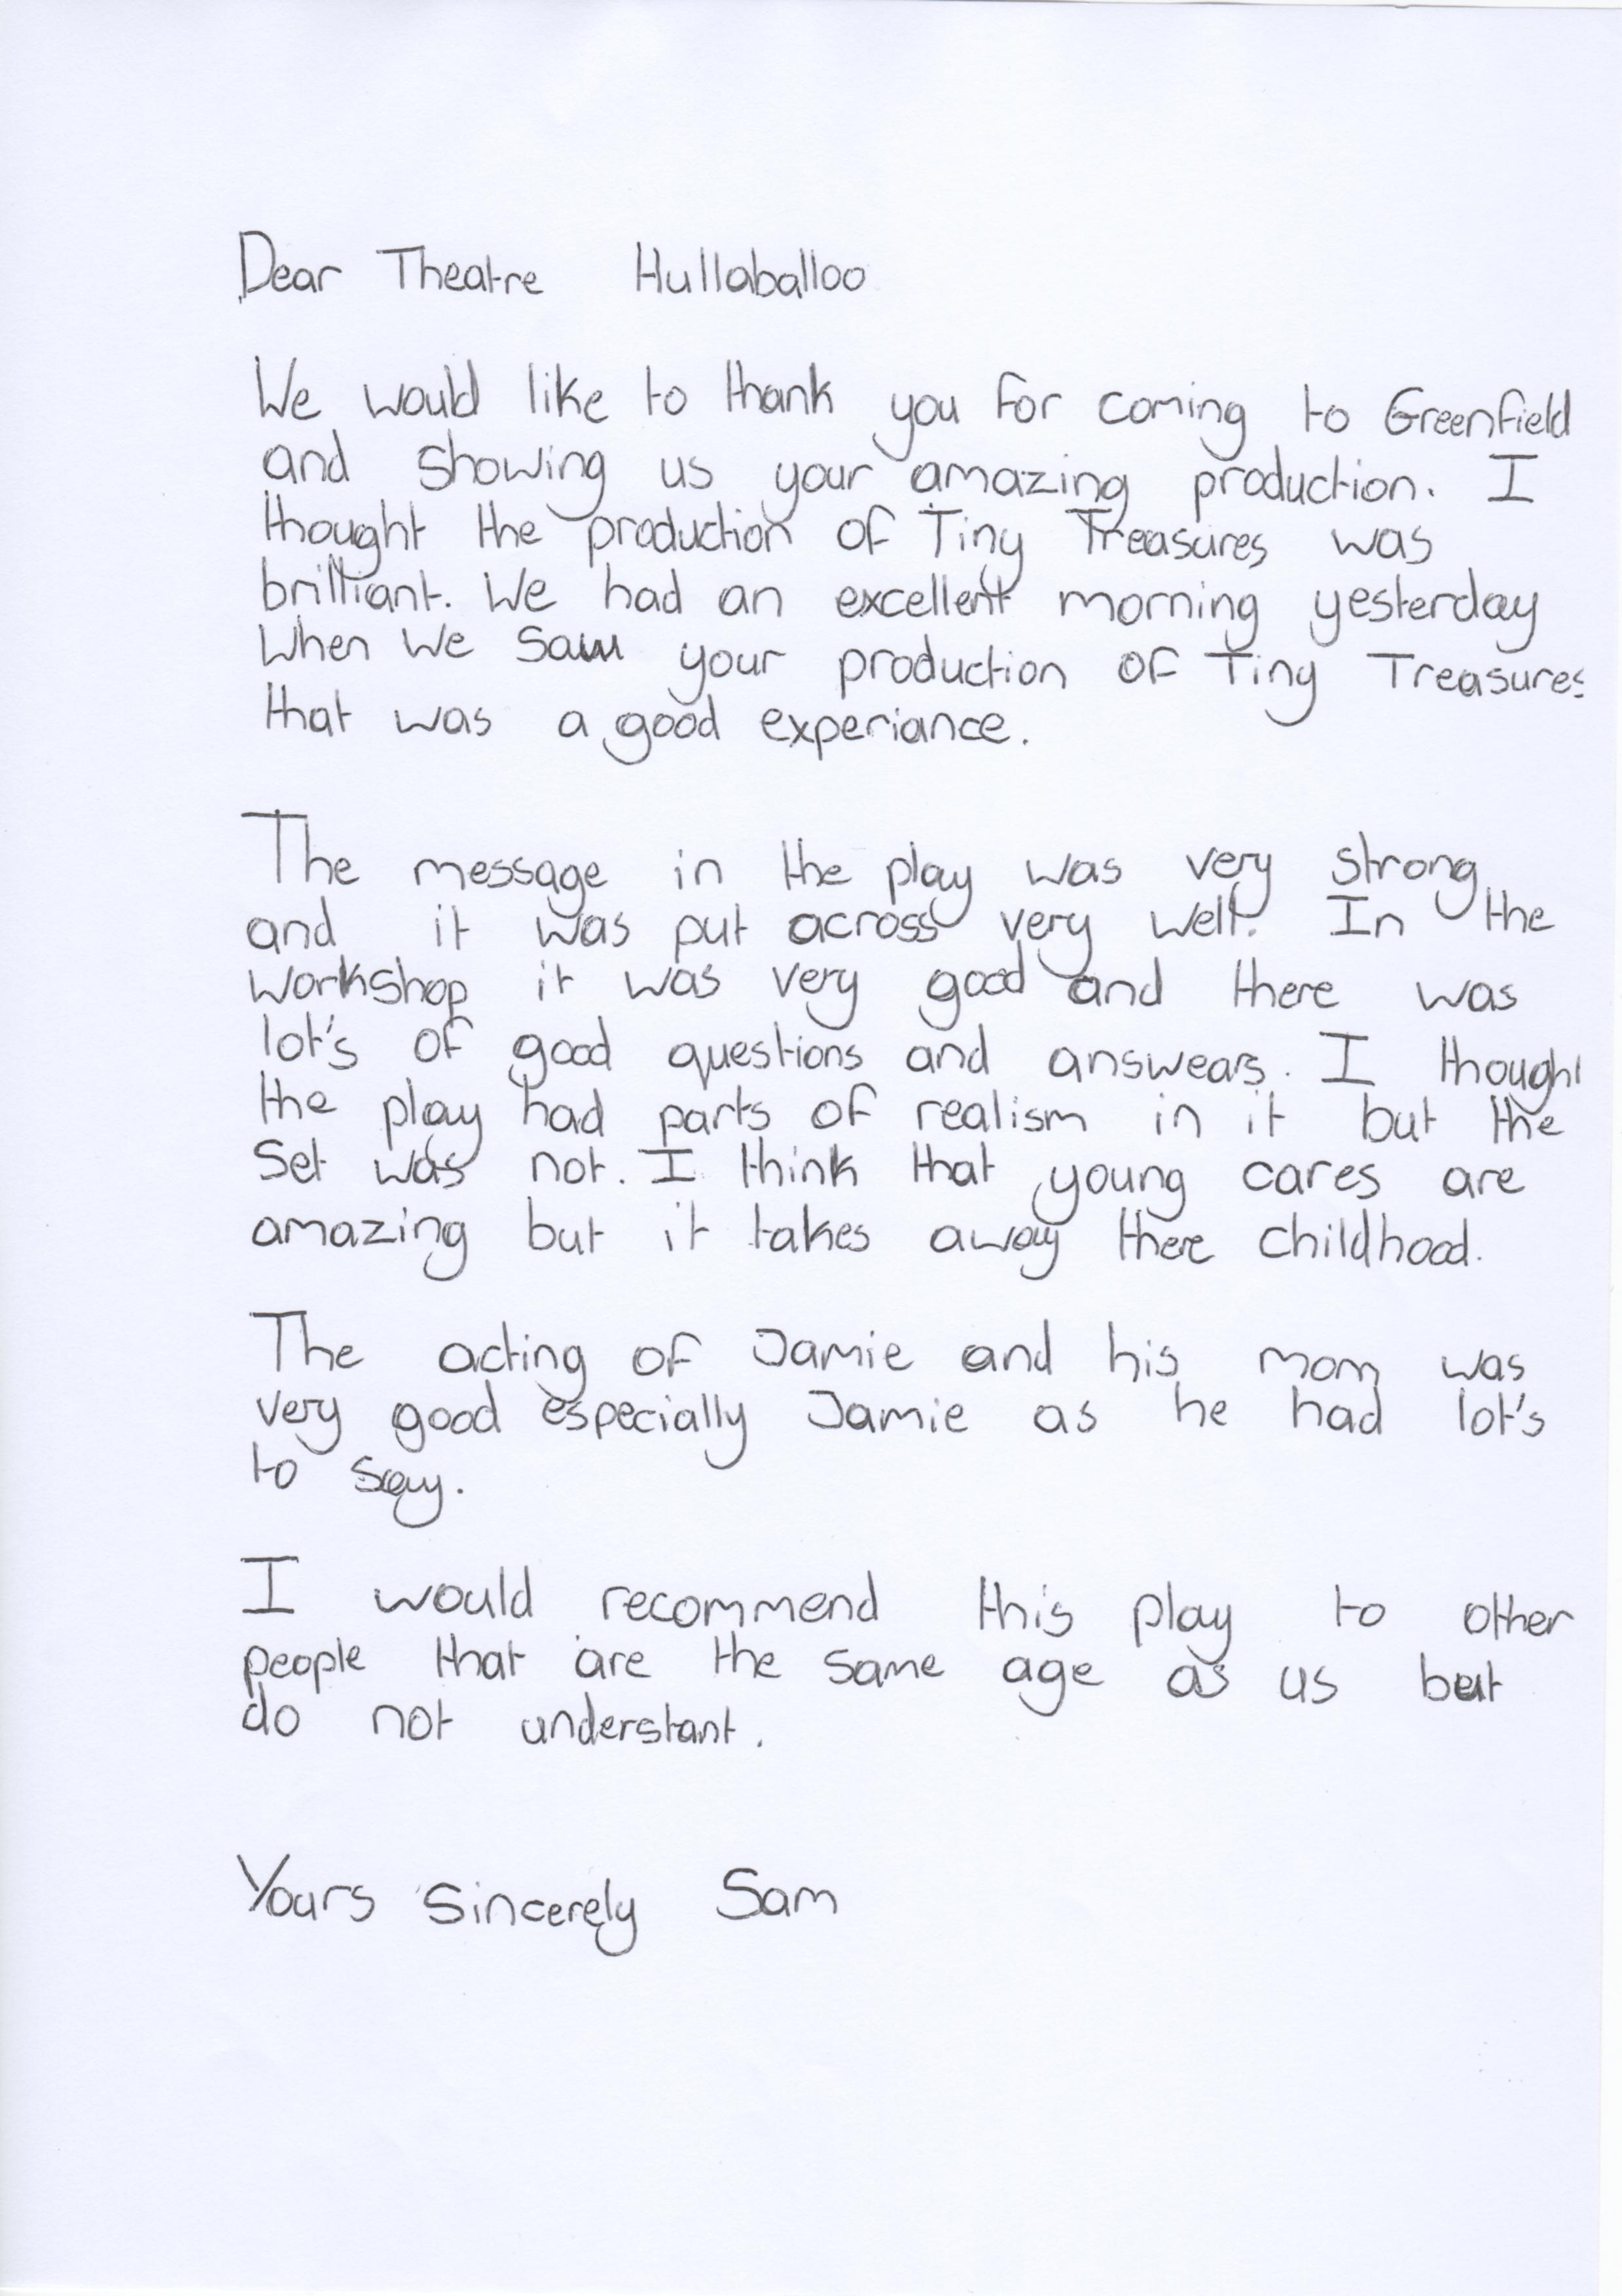 Dear Theatre Hullaballoo
We would like to thank you for coming to Greenfield
and showing us your amazing production. I
thought the production of Tiny Treasures was
brilliant. We had an excellent morning yesterday
when we saw your production of Tiny Treasures
that was a good experiance.
The message in the play was very strong
and it was put across very well. In the
workshop it was very good and there was
lot's of good questions and answears. I thought
the play had parts of realism in it but the
set was not. I think that young cares are
amazing but it takes away there childhood.
The acting of Jamie and his mom was
very good especially Jamie as he had lot's
to say.
I would recommend this play to other
people that are the same age as us but
do not understant.
Yours Sincerely Sam